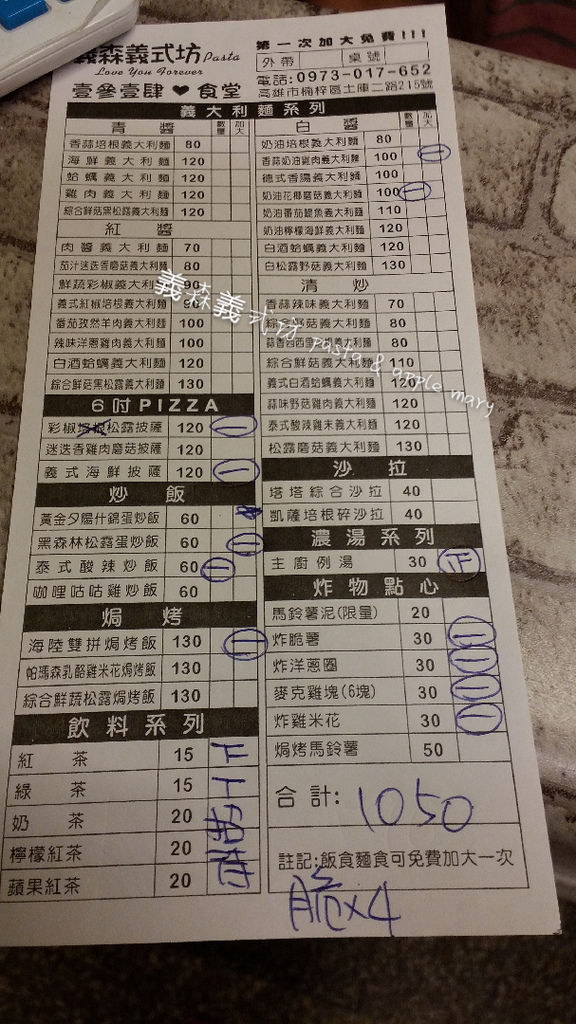 義森義式坊 Pasta
Love You Forever
壹參壹肆 ♥ 食堂
第一次加大免費!!!
外帶 桌號
電話:0973-017-652
高雄市楠梓區土庫二路215號
義大利麵系列
青醬 數量 加大
香蒜培根義大利麵 80
海鮮義大利麵 120
蛤蠣義大利麵 120
雞肉義大利麵 120
綜合鮮菇黑松露義大利麵 120
紅醬
肉醬義大利麵 70
茄汁迷迭香磨菇義大利麵 80
鮮蔬彩椒義大利麵 90
義式紅椒培根義大利麵 90
番茄孜然羊肉義大利麵 100
辣味洋蔥雞肉義大利麵 100
白酒蛤蠣義大利麵 120
綜合鮮菇黑松露義大利麵 130
6吋PIZZA
彩椒培根松露披薩 120 一
迷迭香雞肉磨菇披薩 120
義式海鮮披薩 120 一
炒飯
黃金夕陽什錦蛋炒飯 60
黑森林松露蛋炒飯 60 一
泰式酸辣炒飯 60 一
咖哩咕咕雞炒飯 60
焗烤
海陸雙拼焗烤飯 130 一
帕瑪森乳酪雞米花焗烤飯 130
綜合鮮蔬松露焗烤飯 130
飲料系列
紅茶 15
綠茶 15
奶茶 20
檸檬紅茶 20
蘋果紅茶 20
白醬 數量 加大
奶油培根義大利麵 80
香蒜奶油雞肉義大利麵 100 一
德式香腸義大利麵 100
奶油花椰磨菇義大利麵 100 一
奶油番茄鯷魚義大利麵 110
奶油檸檬海鮮義大利麵 120
白酒蛤蠣義大利麵 120
白松露野菇義大利麵 130
清炒
香蒜辣味義大利麵 70
綜合野菇義大利麵 80
蒜香台西義大利麵 80
綜合鮮菇義大利麵 110
義式白酒蛤蠣義大利麵 120
蒜味野菇雞肉義大利麵 120
泰式酸辣雞末義大利麵 120
松露磨菇義大利麵 130
沙拉
塔塔綜合沙拉 40
凱薩培根碎沙拉 40
濃湯系列
主廚例湯 30 正
炸物點心
馬鈴薯泥(限量) 20
炸脆薯 30 一
炸洋蔥圈 30 一
麥克雞塊(6塊) 30 一
炸雞米花 30 一
焗烤馬鈴薯 50
合計: 1050
註記:飯食麵食可免費加大一次
脆x4
義森義式坊 pasta & apple mary